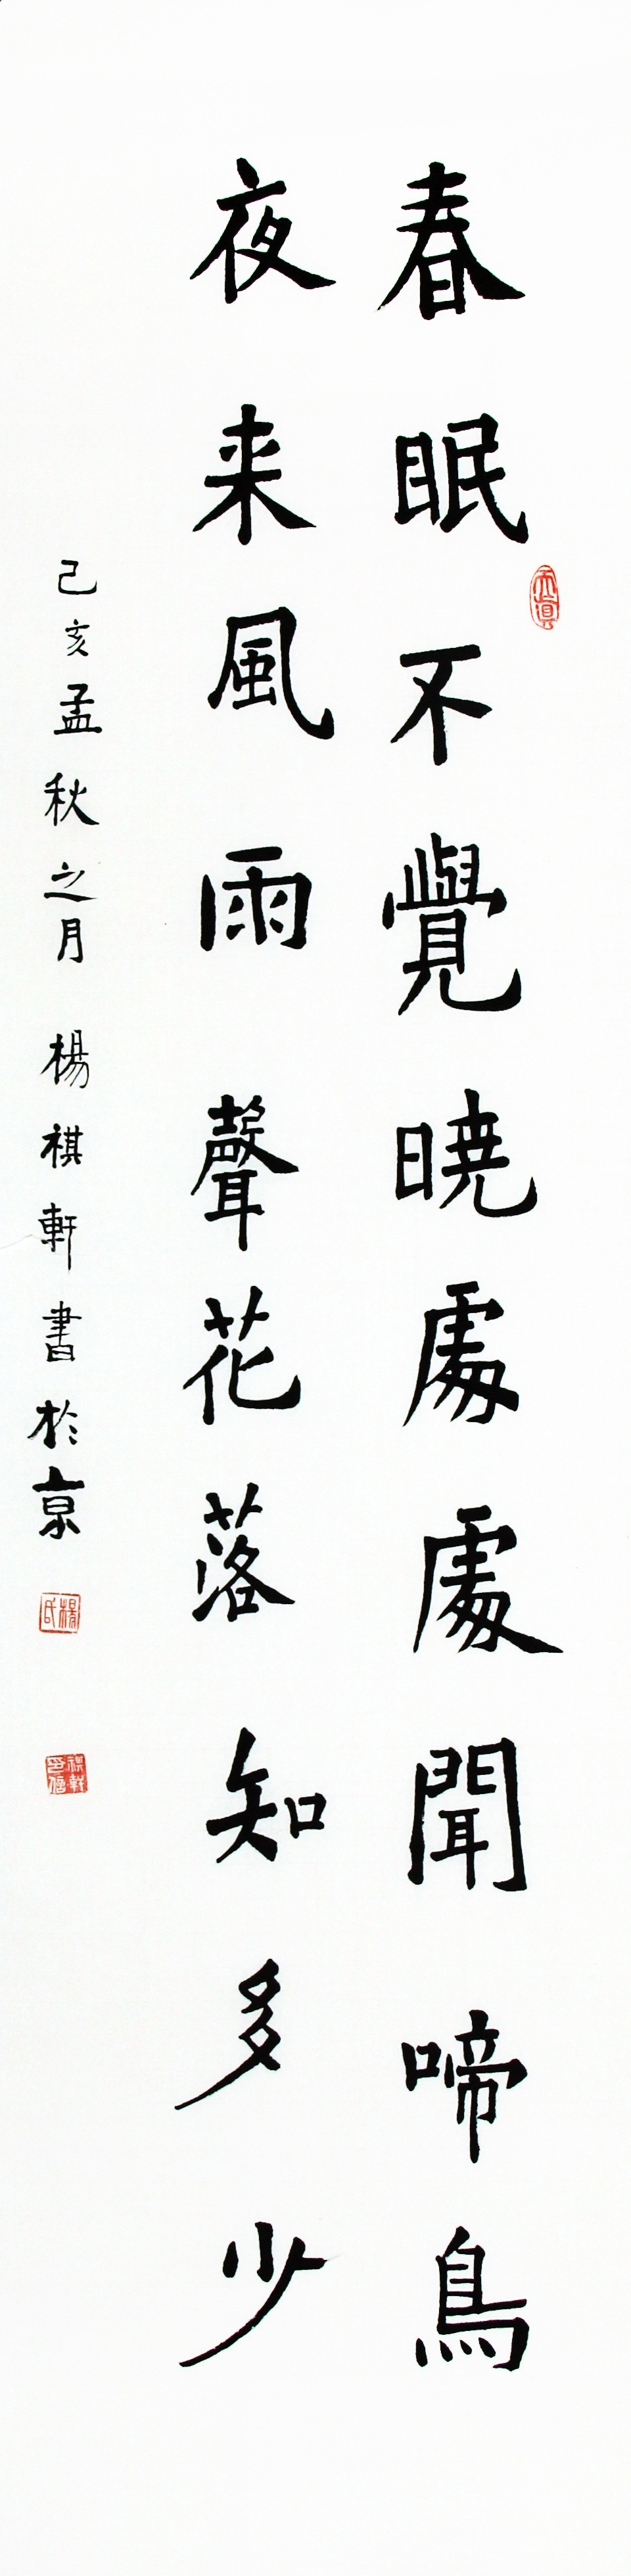 春眠不覺曉處處聞啼鳥
夜来風雨聲花落知多少
己亥孟秋之月 楊祺軒書於京
楊氏
祺軒印信